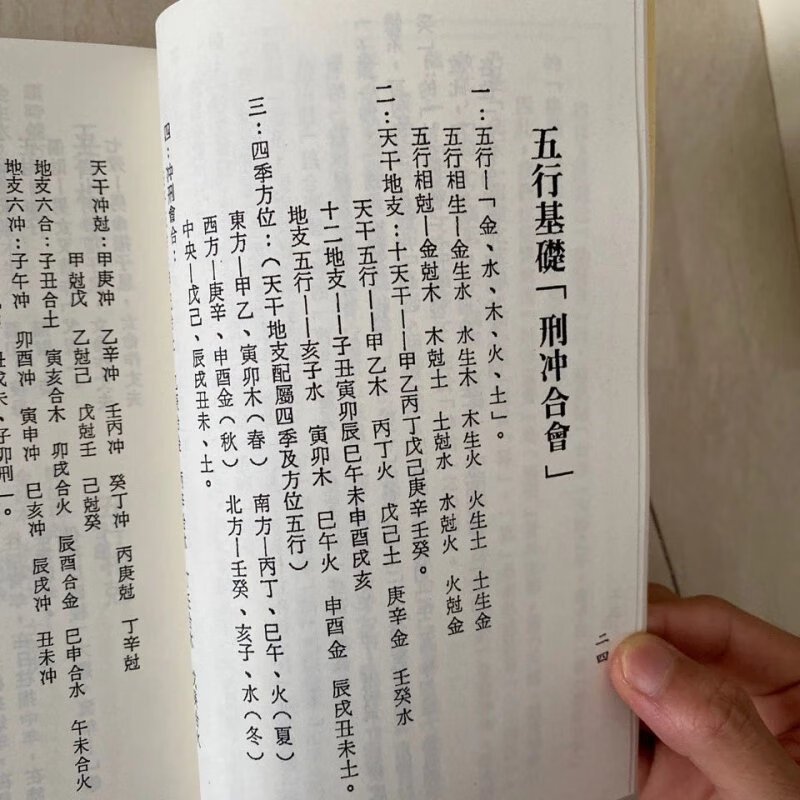 五行基礎「刑冲合會」
一：五行—「金、水、木、火、土」。
五行相生—金生水　水生木　木生火　火生土　土生金
五行相尅—金尅木　木尅土　土尅水　水尅火　火尅金
二：天干地支：十天干——甲乙丙丁戊己庚辛壬癸。
天干五行——甲乙木　丙丁火　戊己土　庚辛金　壬癸水
十二地支——子丑寅卯辰巳午未申酉戌亥
地支五行——亥子水　寅卯木　巳午火　申酉金　辰戌丑未土。
三：四季方位：（天干地支配屬四季及方位五行）
東方—甲乙、寅卯木（春）　南方—丙丁、巳午、火（夏）
西方—庚辛、申酉金（秋）　北方—壬癸、亥子、水（冬）
中央—戊己、辰戌丑未、土。
四：冲刑會合：
二四
天干冲尅：甲庚冲　乙辛冲　壬丙冲　癸丁冲　丙庚尅　丁辛尅
甲尅戊　乙尅己　戊尅壬　己尅癸
地支六合：子丑合土　寅亥合木　卯戌合火　辰酉合金　巳申合水　午未合火
地支六冲：子午冲　卯酉冲　寅申冲　巳亥冲　辰戌冲　丑未冲
丑戌未、子卯刑」。